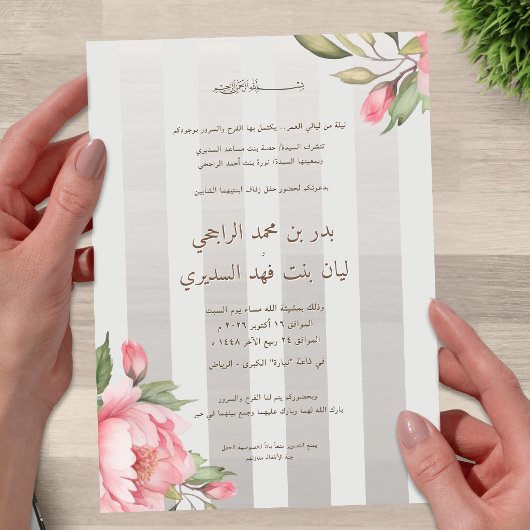 بسم الله الرحمن الرحيم
ليلة من ليالي العمر.. يكتمل بها الفرح والسرور بوجودكم
تتشرف السيدة/ حصة بنت مساعد السديري
وسميتها السيدة/ نورة بنت أحمد الراجحي
بدعوتكم لحضور حفل زفاف ابنيهما الشابين
بدر بن محمد الراجحي
و
ليان بنت فهد السديري
وذلك بمشيئة الله مساء يوم السبت
الموافق ١٦ أكتوبر ٢٠٢٦ م
الموافق ٢٤ ربيع الآخر ١٤٤٨ ه
في قاعة "نيارة" الكبرى - الرياض
وبحضوركم يتم لنا الفرح والسرور
بارك الله لهما وبارك عليهما وجمع بينهما في خير
يمنع التصوير منعاً باتاً لخصوصية الحفل
جنة الأطفال منازلهم